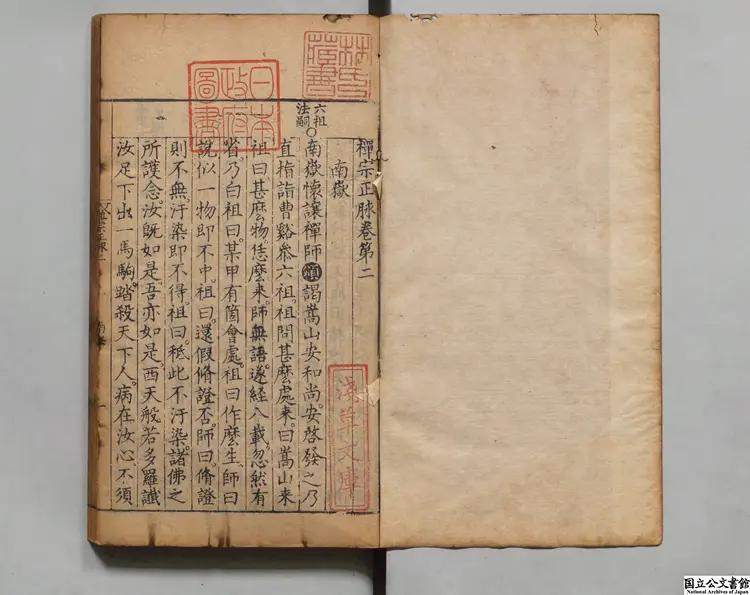 禪宗正脉卷第二
南嶽
六祖
法嗣
○南嶽懷讓禪師頌謁嵩山安和尚。安啓發之乃
直指詣曹谿叅六祖。祖問甚麽處來。曰嵩山來
祖曰甚麽物恁麽來。師無語。遂經八載。忽然有
省。乃白祖曰。某甲有箇會處。祖曰作麽生。師曰
說似一物即不中。祖曰。還假脩證否。師曰。脩證
則不無。汙染即不得。祖曰。秪此不汙染。諸佛之
所護念。汝旣如是。吾亦如是。西天般若多羅讖
汝足下出一馬駒。踏殺天下人。病在汝心。不須
林氏藏書
日本政府圖書
淺草文庫
国立公文書館
National Archives of Japan